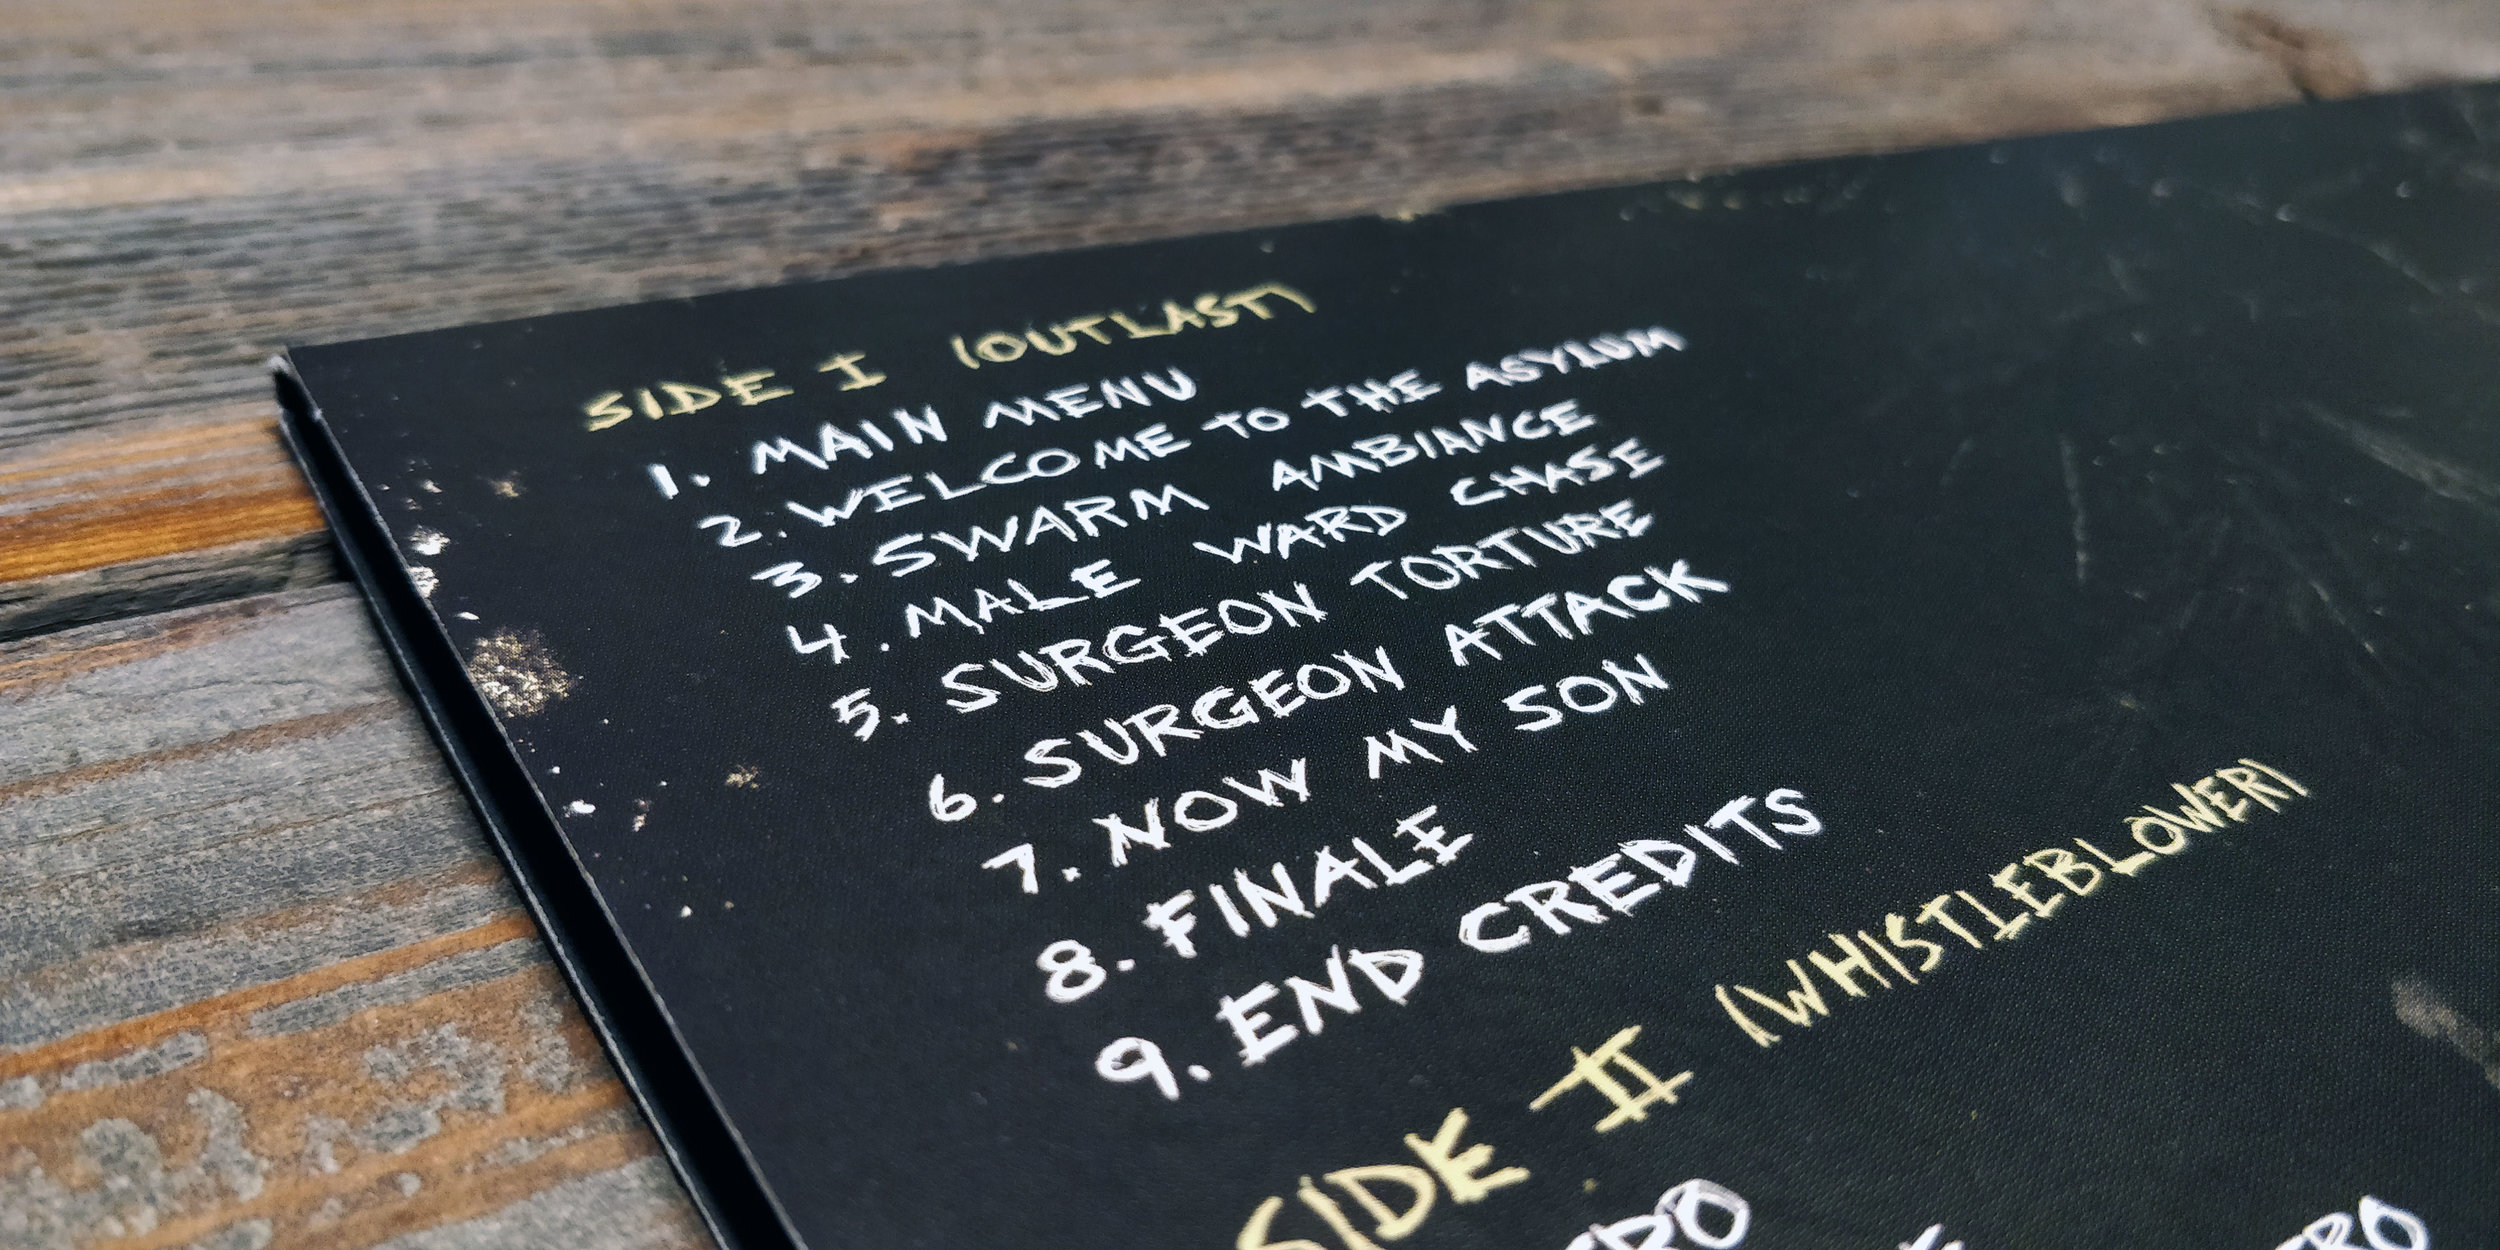 SIDE I (OUTLAST)
1. MAIN MENU
2. WELCOME TO THE ASYLUM
3. SWARM AMBIANCE
4. MALE WARD CHASE
5. SURGEON TORTURE
6. SURGEON ATTACK
7. NOW MY SON
8. FINALE
9. END CREDITS
SIDE II (WHISTLEBLOWER)